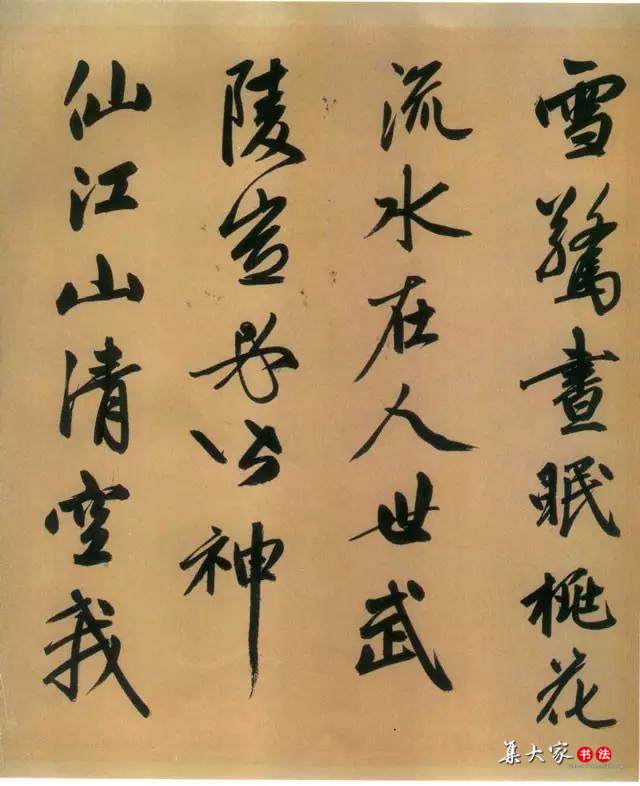 雪驚晝眠桃花
流水在人世武
陵豈必皆神
仙江山清空我
集大家书法